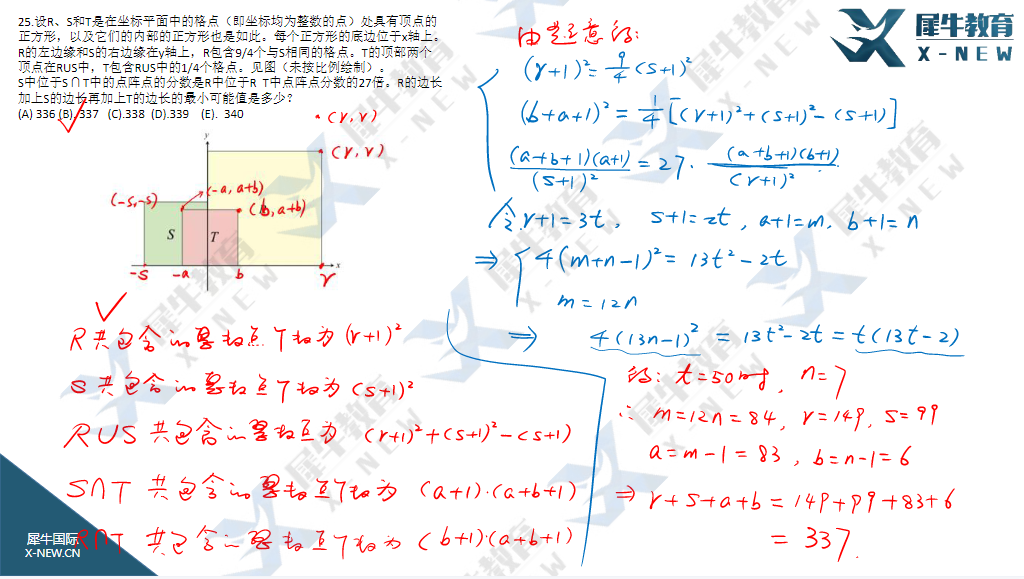 25.设R、S和T是在坐标平面中的格点（即坐标均为整数的点）处具有顶点的
正方形，以及它们的内部的正方形也是如此。每个正方形的底边位于x轴上。
R的左边缘和S的右边缘在y轴上，R包含9/4个与S相同的格点。T的顶部两个
顶点在RUS中，T包含RUS中的1/4个格点。见图（未按比例绘制）。
S中位于S∩T中的点阵点的分数是R中位于R T中点阵点分数的27倍。R的边长
加上S的边长再加上T的边长的最小可能值是多少？
(A) 336 (B). 337 (C).338 (D).339 (E). 340
(r, r)
y
(r, r)
(-s, -s)
(-a, a+b)
(b, a+b)
S
T
x
-s
-a
b
r
R共包含的整数点个数为 (r+1)²
S 共包含的整数点个数为 (s+1)²
RUS 共包含的整数点为 (r+1)²+(s+1)²-(s+1)
S∩T 共包含的整数点个数为 (a+1)·(a+b+1)
R∩T 共包含的整数点个数为 (b+1)·(a+b+1)
由题意得:
(r+1)² = 9/4 (s+1)²
(b+a+1)² = 1/4 [(r+1)²+(s+1)²-(s+1)]
(a+b+1)(a+1)/(s+1)² = 27 · (a+b+1)(b+1)/(r+1)²
令 r+1=3t, s+1=2t, a+1=m, b+1=n
⇒ 4(m+n-1)² = 13t²-2t
m=12n
⇒ 4(13n-1)² = 13t²-2t = t(13t-2)
得: t=50时, n=7
∴ m=12n=84, r=149, s=99
a=m-1=83, b=n-1=6
⇒ r+s+a+b=149+99+83+6
= 337.
犀牛教育
X-NEW
犀牛国际
X-NEW.CN